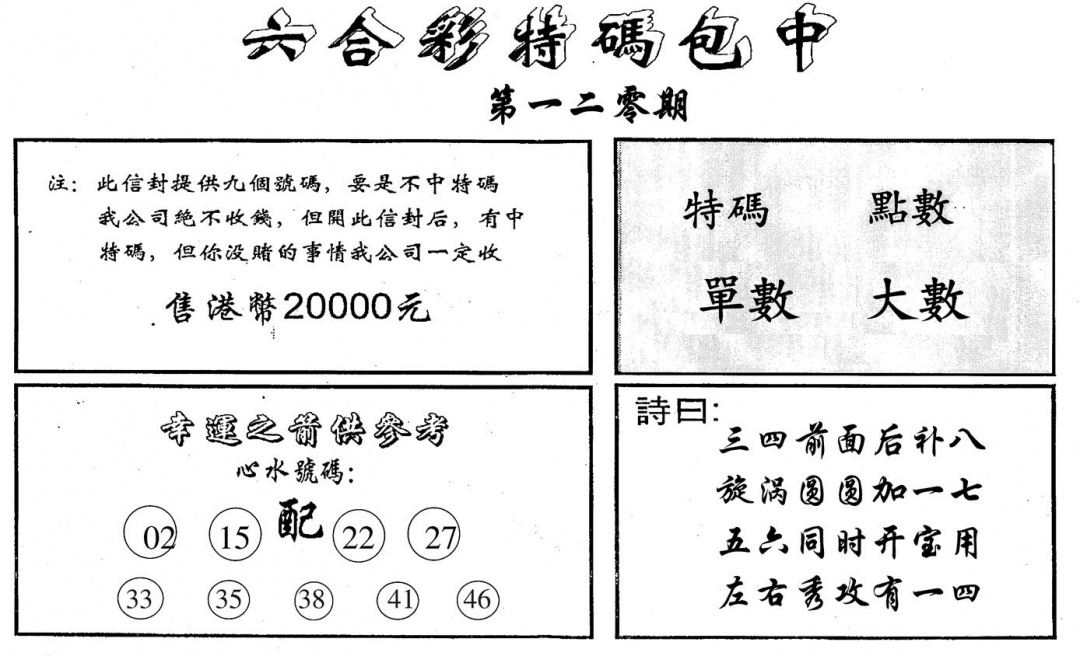 六合彩特碼包中
第一二零期
注：此信封提供九個號碼，要是不中特碼
我公司絶不收錢，但開此信封后，有中
特碼，但你没賭的事情我公司一定收
售港幣20000元
特碼 點數
單數 大數
幸運之箭供參考
心水號碼：
02 15 配 22 27
33 35 38 41 46
詩曰：
三四前面后补八
旋涡圆圆加一七
五六同时开宝用
左右秀攻有一四